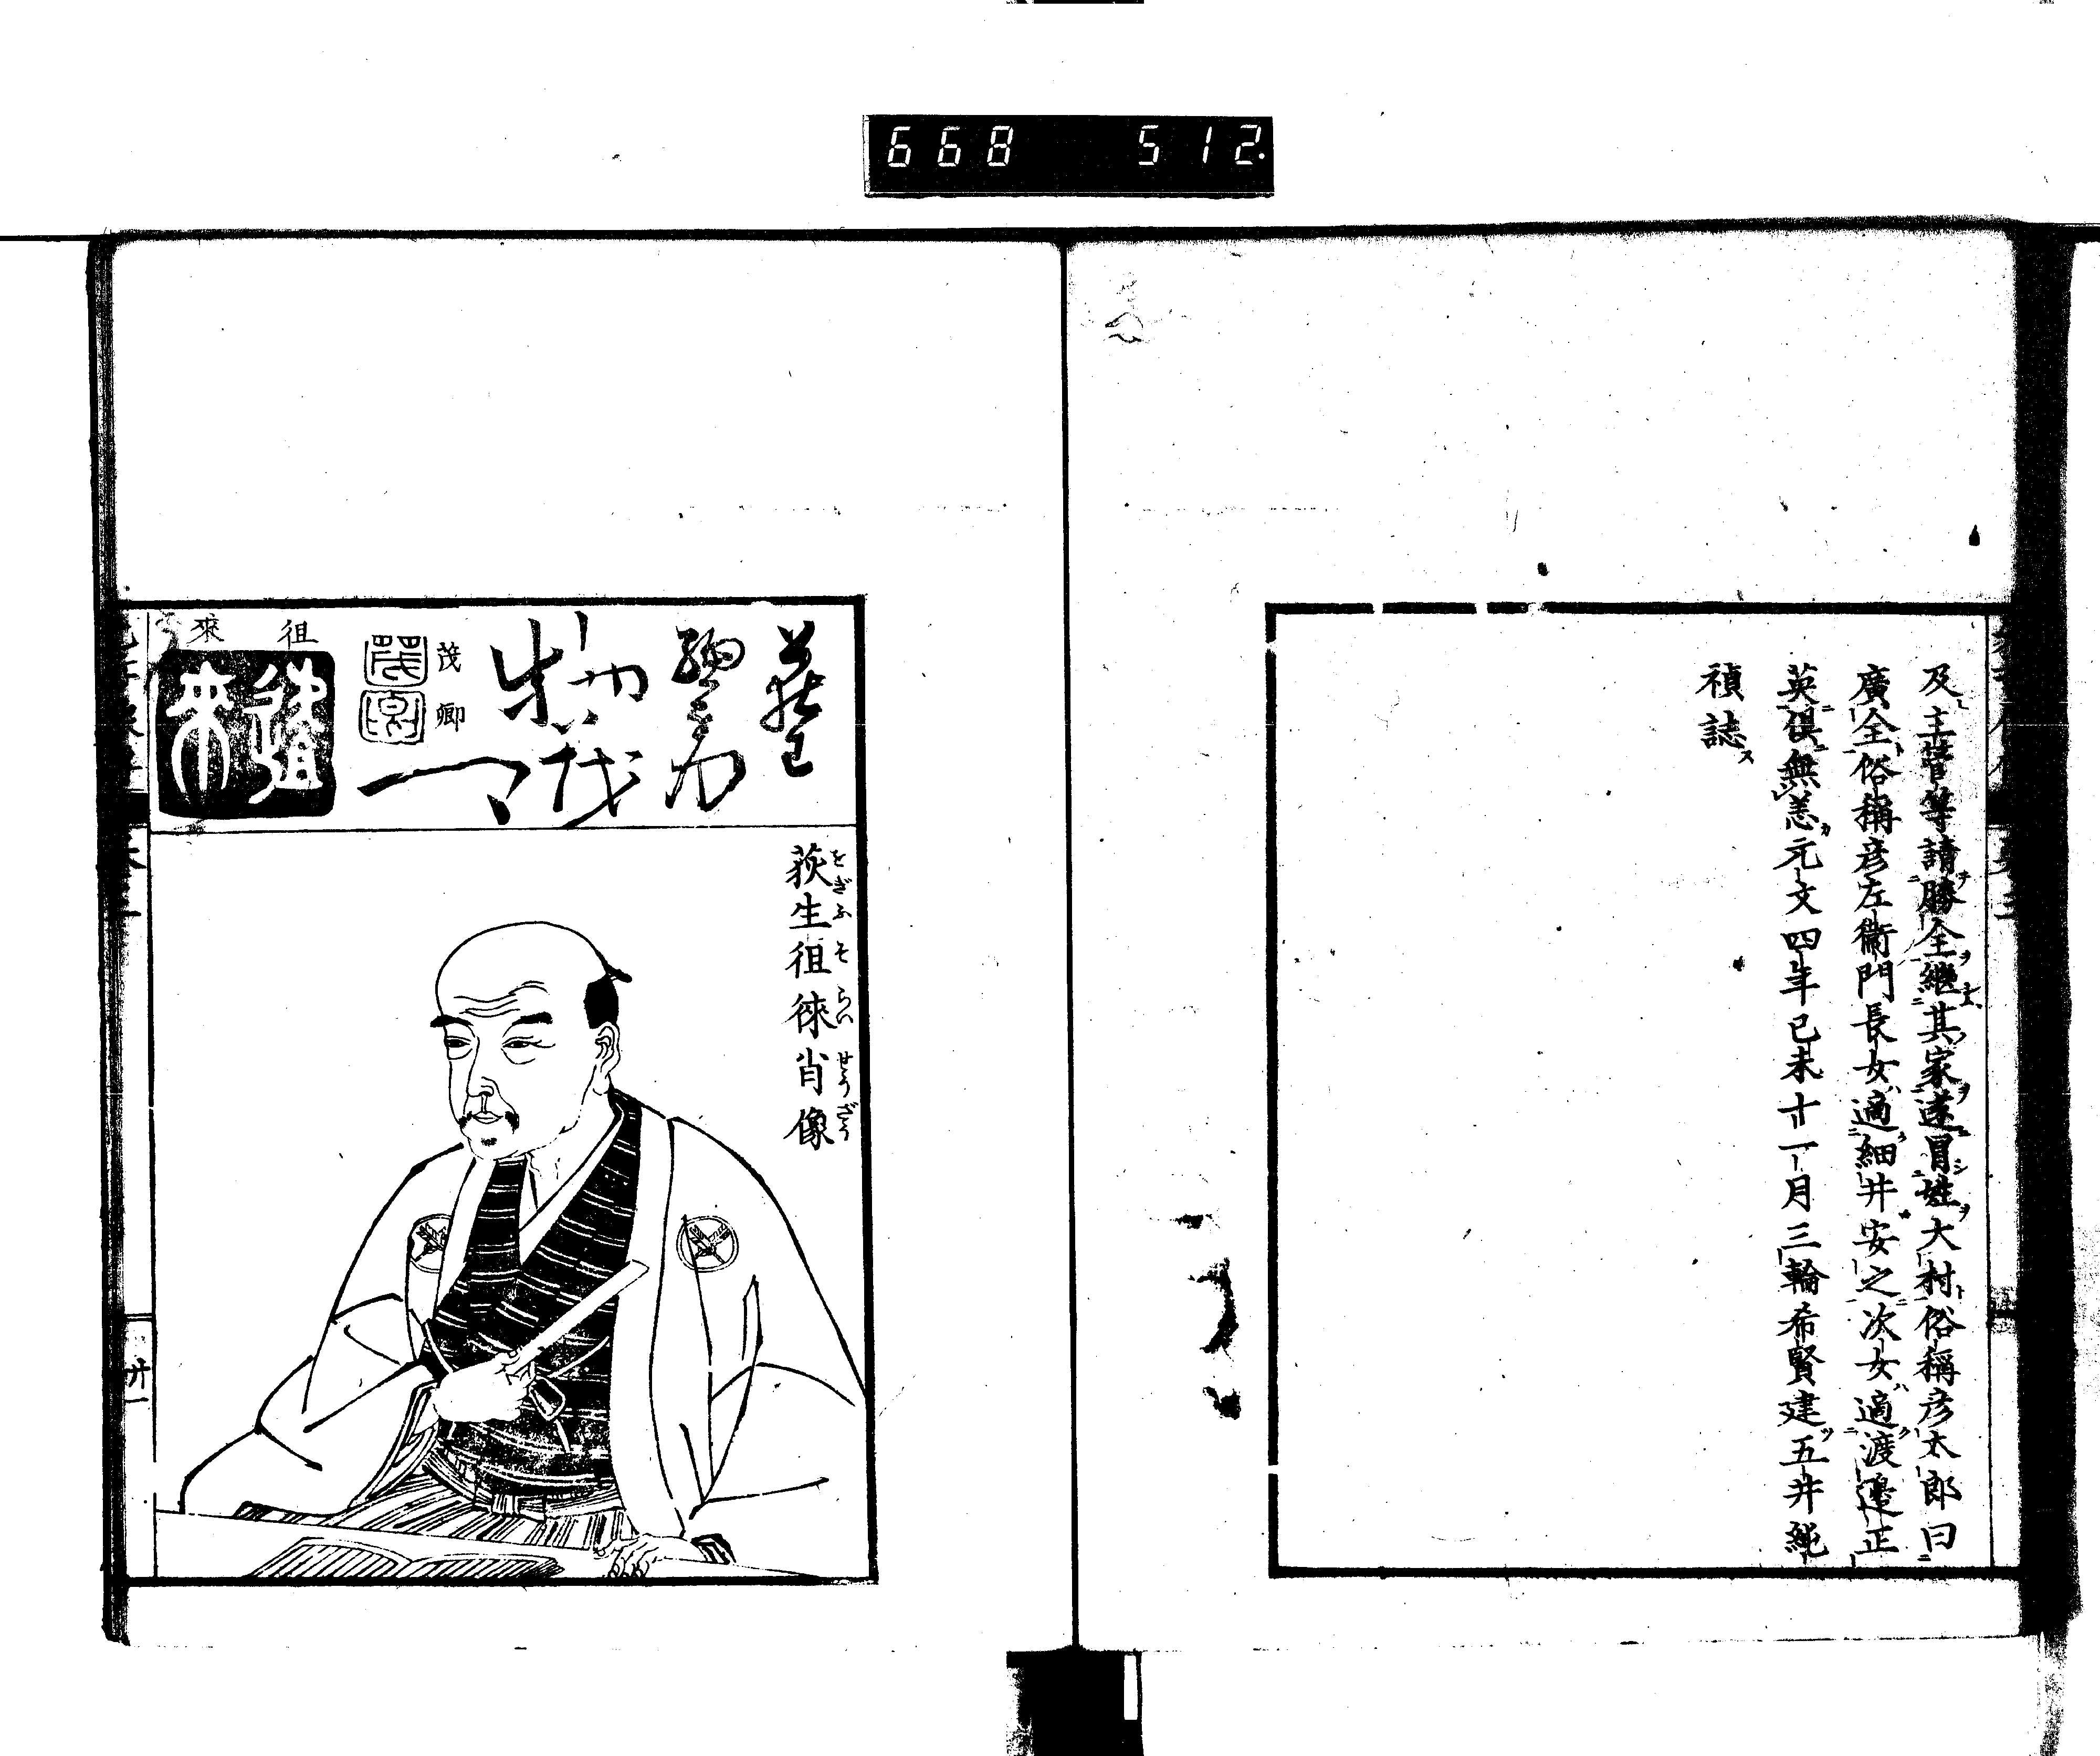 668 512
及主管等請勝全継其家遂冒姓大村俗稱彦太郎曰
廣全俗稱彦左衞門長女適細井安之次女適渡邊正
英俱無恙元文四年己未十一月三輪希賢建五井純
禎誌
荻生徂徠肖像
をぎふそらいせうざう
物茂
茂卿
徂來
廿一